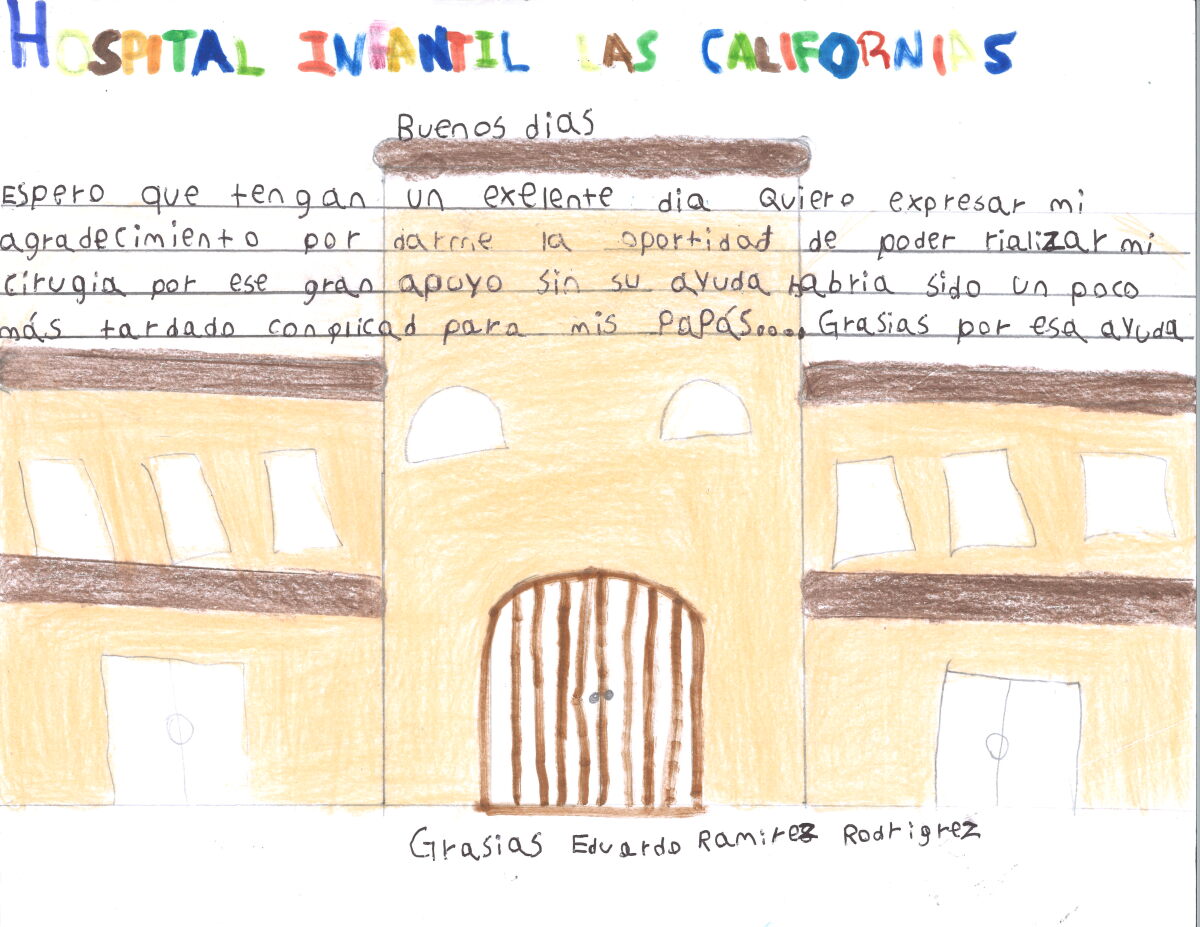 HOSPITAL INFANTIL LAS CALIFORNIAS
Buenos dias
Espero que tengan un exelente dia Quiero expresar mi
agradecimiento por darme la oportidad de poder rializar mi
cirugia por ese gran apoyo sin su ayuda habria sido un poco
más tardado conplicad para mis PaPás.... Grasias por esa ayuda
Grasias Eduardo Ramirez Rodrigrez